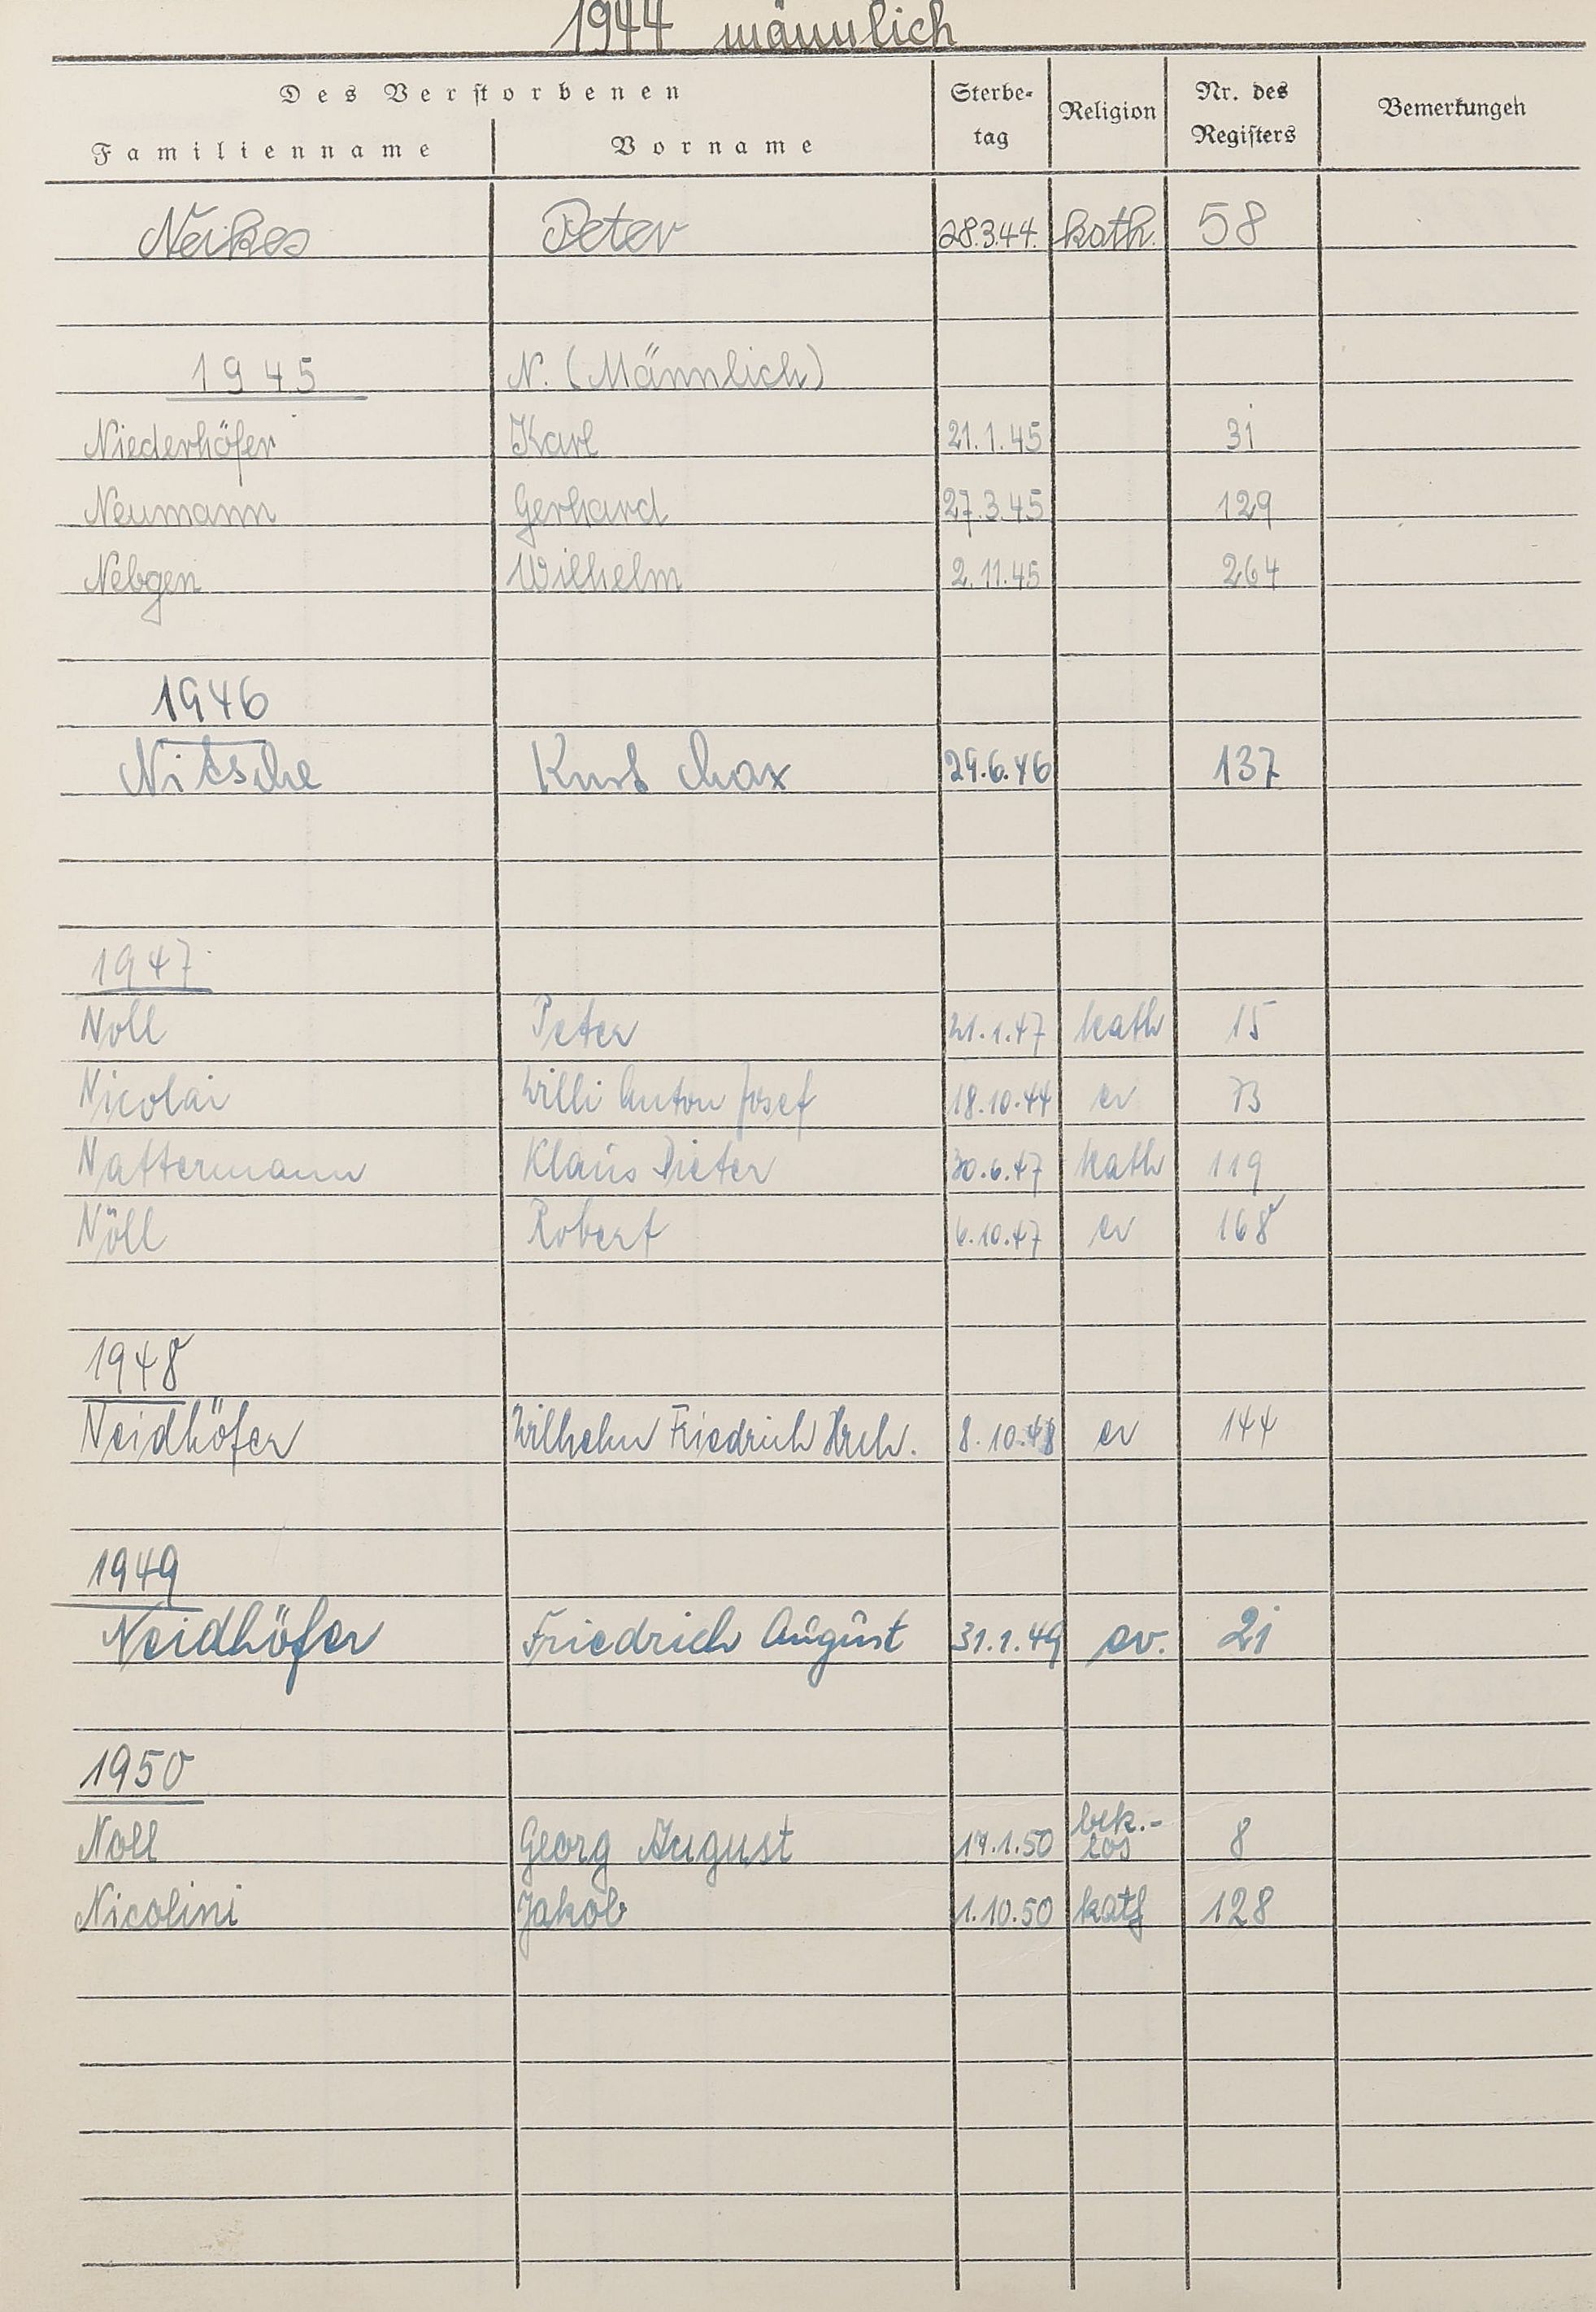 1944 männlich
Des Verstorbenen
Familienname Vorname Sterbe-tag Religion Nr. des Registers Bemerkungen
Neikes Peter 28.3.44. kath. 58
1945 N. (Männlich)
Niederhöfer Karl 21.1.45 31
Neumann Gerhard 27.3.45 129
Nebgen Wilhelm 2.11.45 264
1946
Nitsche Kurt Max 29.6.46 137
1947
Noll Peter 21.1.47 kath 15
Nicolai Willi Anton Josef 18.10.44 ev 73
Nattermann Klaus Dieter 30.6.47 kath 119
Nöll Robert 6.10.47 ev 168
1948
Neidhöfer Wilhelm Friedrich Hrch. 8.10.48 ev 144
1949
Neidhöfer Friedrich August 31.1.49 ev. 21
1950
Noll Georg August 17.1.50 bek.-los 8
Nicolini Jakob 1.10.50 kath 128